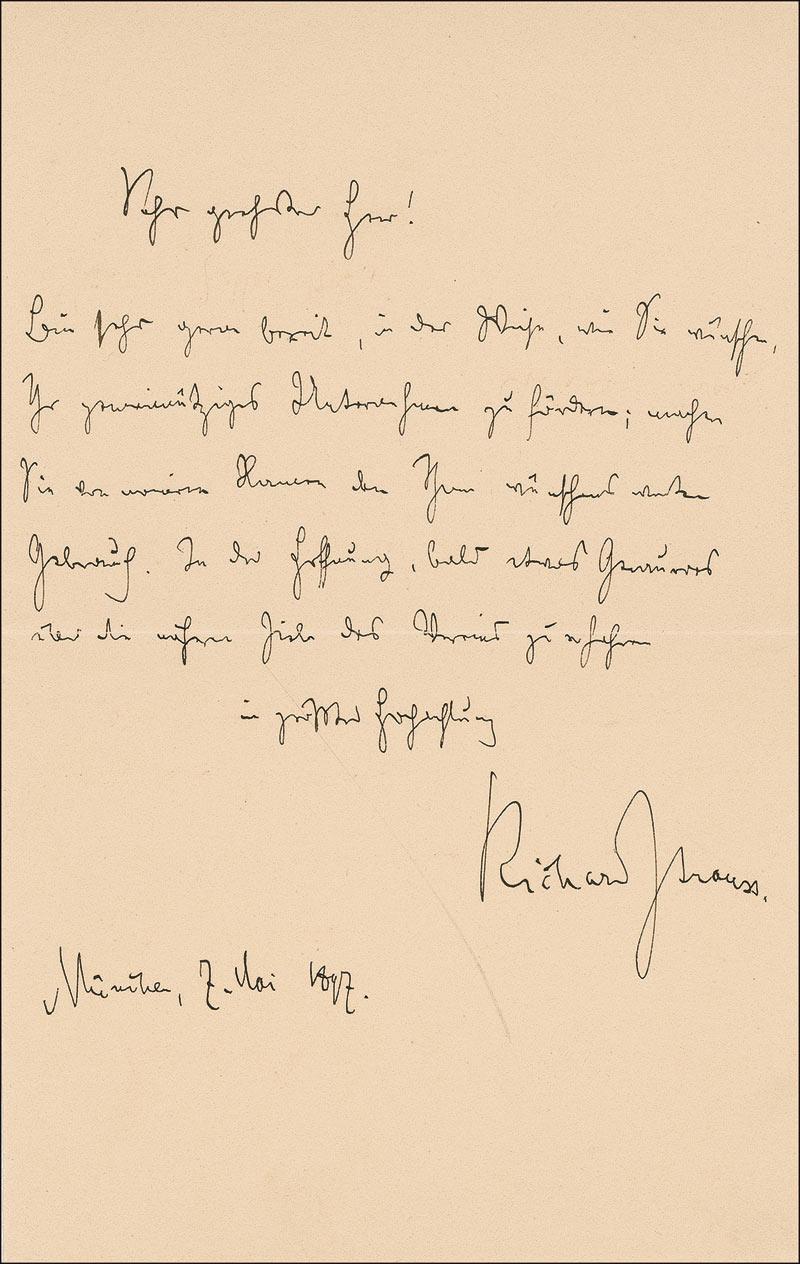 Sehr geehrter Herr!
Bin sehr gerne bereit, in der Weise, wie Sie wünschen,
Ihr gemeinnütziges Unternehmen zu fördern; machen
Sie von meinem Namen den Ihnen wünschenswerten
Gebrauch. In der Hoffnung, bald etwas Genaueres
über die näheren Ziele des Vereins zu erfahren
in größter Hochachtung
Richard Strauss.
München, 7. Mai 1897.